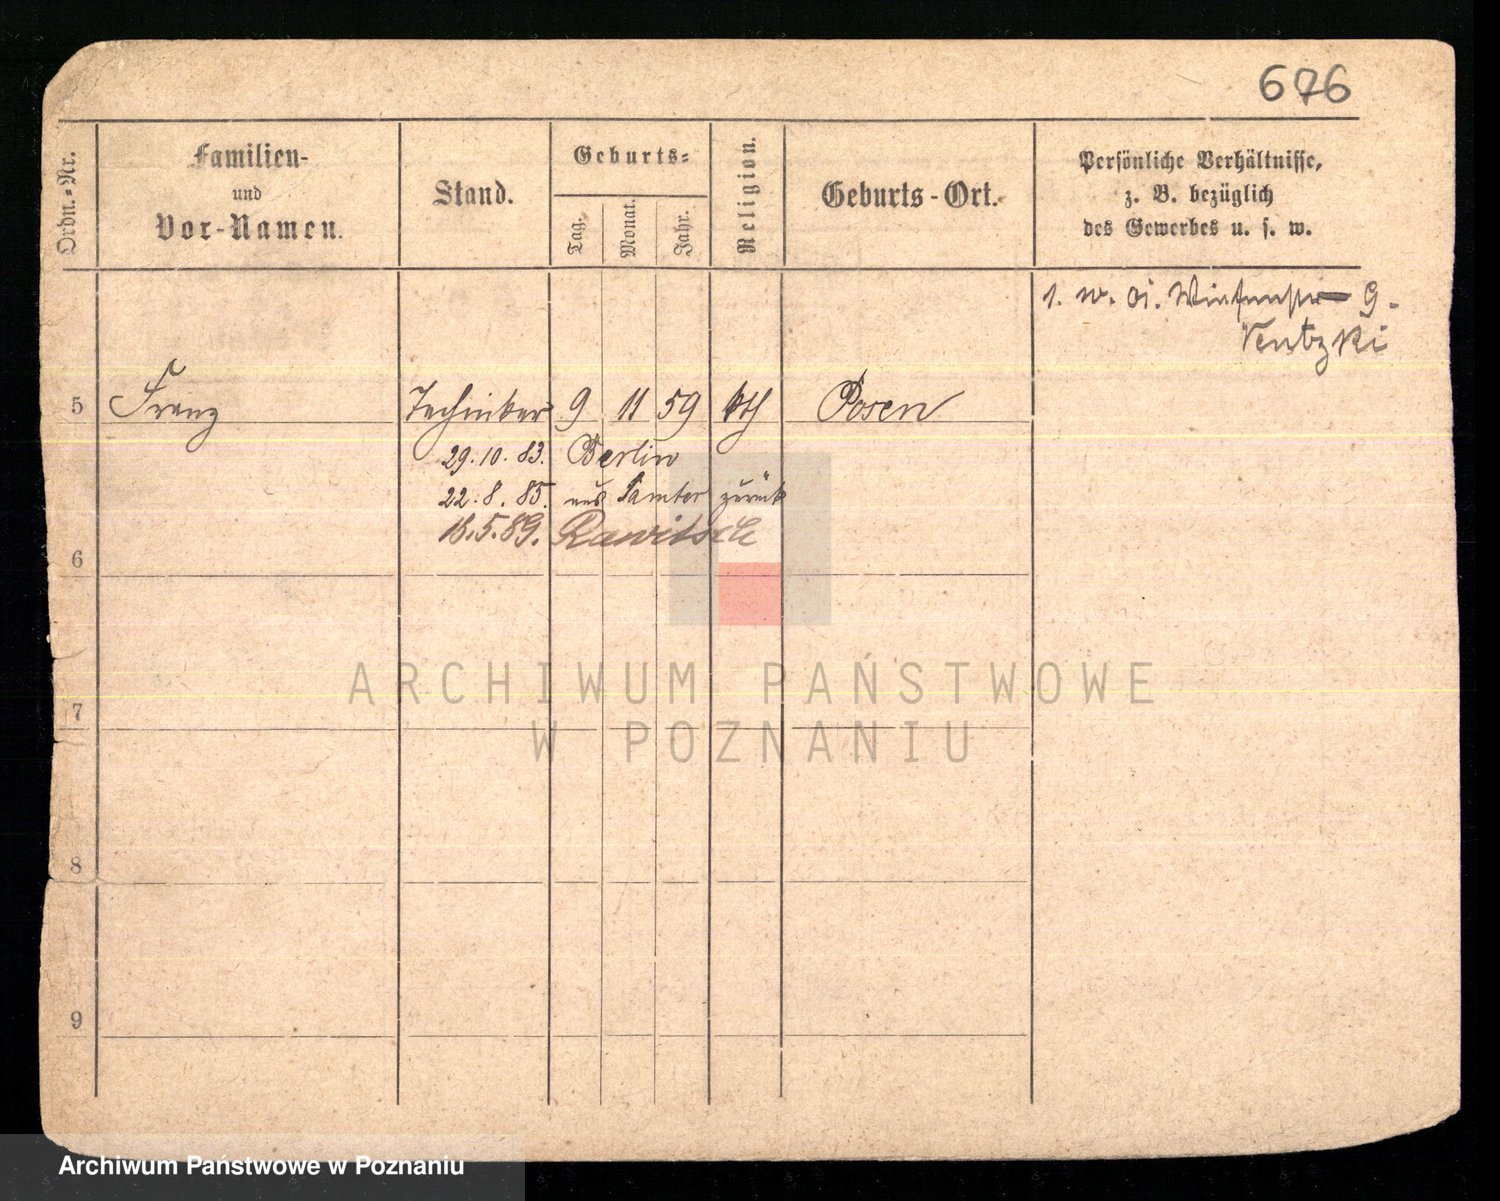 676
Ordn.-Nr.
Familien-
und
Vor-Namen.
Stand.
Geburts-
Tag.
Monat.
Jahr.
Religion.
Geburts-Ort.
Persönliche Verhältnisse,
z. B. bezüglich
des Gewerbes u. s. w.
1. w.
Ventzki
5 Franz Techniker 9 11 59 kth Posen
29.10.83. Berlin
22.8.85. aus Samter zurück
18.5.89. Rawitsch
6
7
8
9
ARCHIWUM PAŃSTWOWE
W POZNANIU
Archiwum Państwowe w Poznaniu